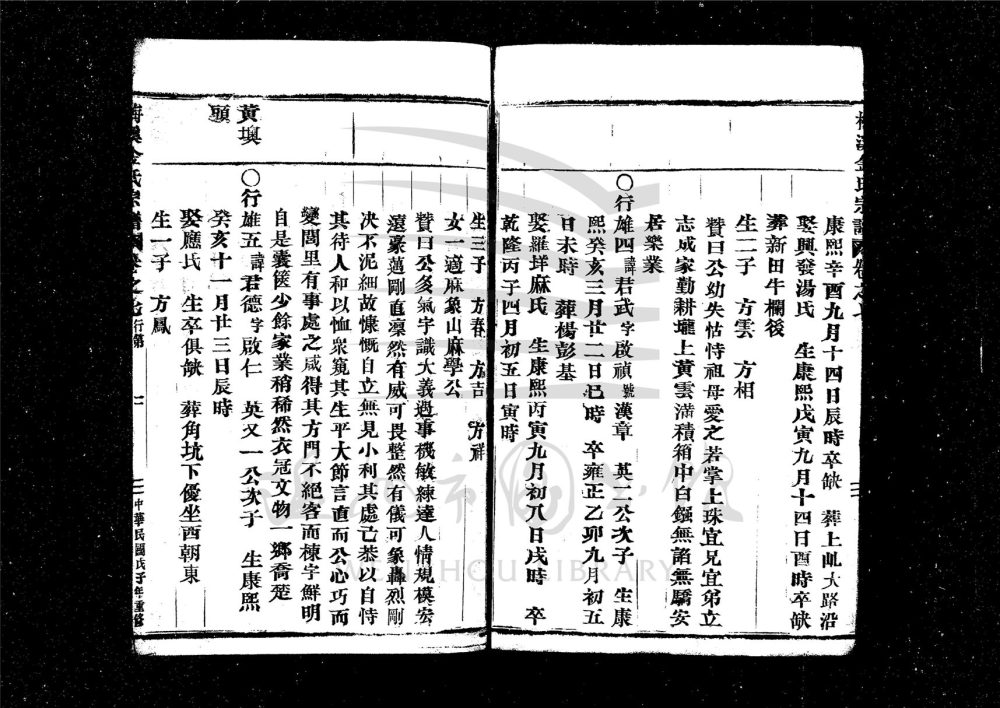 康熙辛酉九月十四日辰時卒缺　葬上乢大路沿
娶興發湯氏　生康熙戊寅九月十四日酉時卒缺
葬新田牛欄後
生二子　方雲　方相
贊曰公幼失怙恃祖母愛之若掌上珠宜兄宜弟立
志成家勤耕壠上黃雲滿積箱中白鏹無諂無驕安
居樂業
〇行雄四諱君武字啟禎號漢章　英二公次子　生康
熙癸亥三月廿二日巳時　卒雍正乙卯九月初五
日未時　葬楊彭基
娶羅垟麻氏　生康熙丙寅九月初八日戌時　卒
乾隆丙子四月初五日寅時
生三子　方春　方吉　方祥
女一適麻象山麻學公
贊曰公負氣字識大義遇事機敏練達人情規模宏
遠豪邁剛直凛然有威可畏整然有儀可象轟烈剛
決不泥細故慷慨自立無見小利其處亡恭以自恃
其待人和以恤衆竟其生平大節言直而公心巧而
變閭里有事處之咸得其方門不絕客而棟宇鮮明
自是囊篋少餘家業稍稀然衣冠文物一鄉喬楚
黃墺
頭
〇行雄五諱君德字啟仁　英又一公次子　生康熙
癸亥十一月廿三日辰時
娶應氏　生卒俱缺　葬角坑下優坐西朝東
生一子　方鳳
金氏宗譜
行第
中華民國戊子年重修
WENZHOU LIBRARY